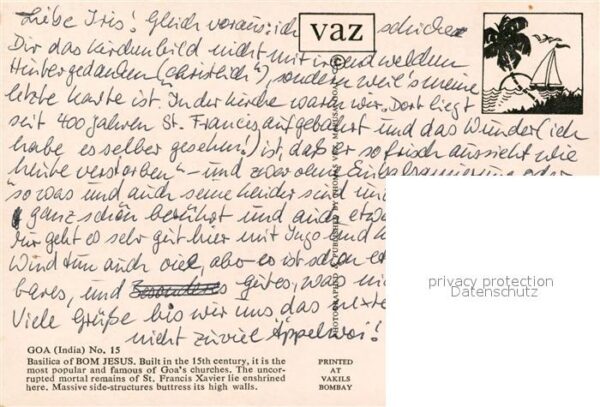 Liebe Iris! Gleich voraus: ich schicke
Dir das Kirchenbild nicht mit irgendwelchen
Hintergedanken ("christlich"), sondern weil's meine
letzte Karte ist. In der Kirche waren wir. Dort liegt
seit 400 Jahren St. Francis aufgebahrt und das Wunder (ich
habe es selber gesehen!) ist, daß er so frisch aussieht wie
"heute verstorben" – und zwar ohne Einbalsamierung oder
so was und auch seine Kleider sind
ganz schön berühmt und auch
Mir geht es sehr gut hier mit Ingo und
Wind tun auch viel, aber es ist schon
bares, und gutes, was
Viele Grüße bis wir uns das
nicht zuviel Äppelwoi!
vaz
PHOTOGRAPHED & PUBLISHED BY THOMAS VAZ, MAPUSA, GOA ©
privacy protection
Datenschutz
GOA (India) No. 15
Basilica of BOM JESUS. Built in the 15th century, it is the
most popular and famous of Goa's churches. The uncor-
rupted mortal remains of St. Francis Xavier lie enshrined
here. Massive side-structures buttress its high walls.
PRINTED
AT
VAKILS
BOMBAY